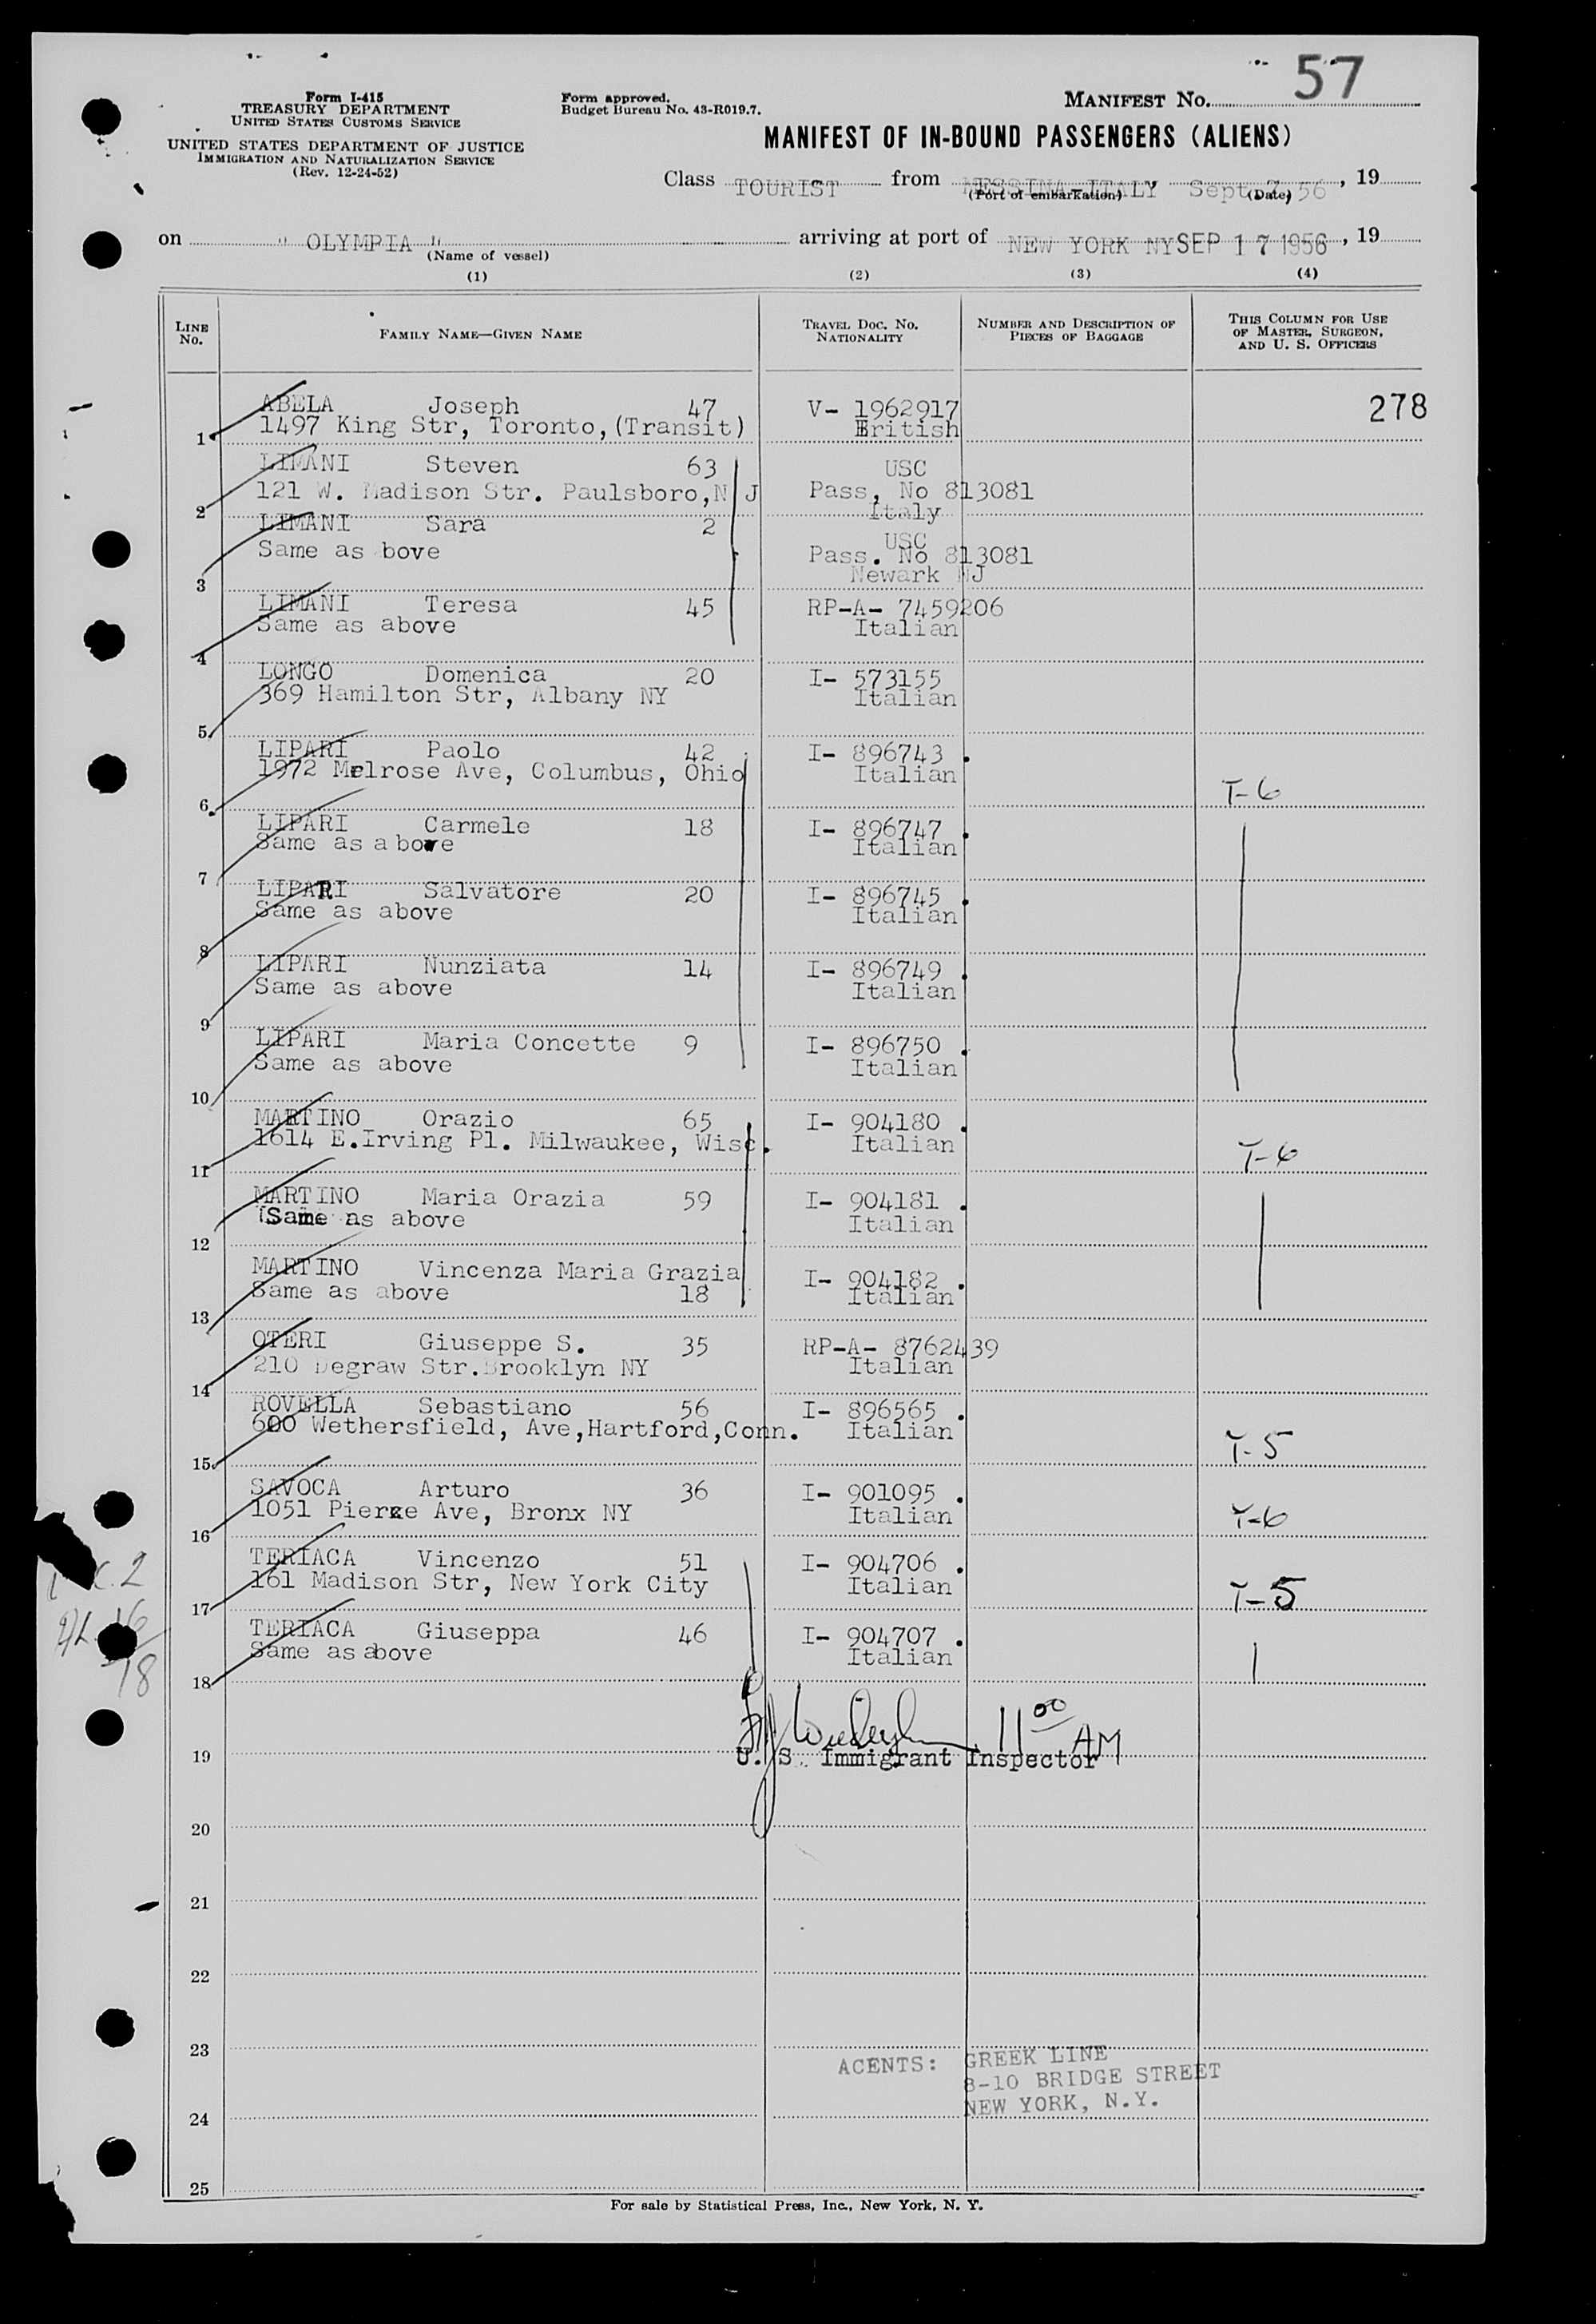 57
Form I-415
TREASURY DEPARTMENT
UNITED STATES CUSTOMS SERVICE
UNITED STATES DEPARTMENT OF JUSTICE
IMMIGRATION AND NATURALIZATION SERVICE
(Rev. 12-24-52)
Form approved.
Budget Bureau No. 43-R019.7.
MANIFEST NO.
MANIFEST OF IN-BOUND PASSENGERS (ALIENS)
Class TOURIST from MESSINA-ITALY Sept 7, 56, 19
(Port of embarkation) (Date)
on " OLYMPIA " arriving at port of NEW YORK NY SEP 17 1956, 19
(Name of vessel)
(1) (2) (3) (4)
LINE No. FAMILY NAME—GIVEN NAME TRAVEL DOC. NO. NATIONALITY NUMBER AND DESCRIPTION OF PIECES OF BAGGAGE THIS COLUMN FOR USE OF MASTER, SURGEON, AND U. S. OFFICERS
ABELA Joseph 47 V- 1962917 278
1 1497 King Str, Toronto,(Transit) British
LIMANI Steven 63 USC
121 W. Madison Str. Paulsboro,N J Pass, No 813081
2 Italy
LIMANI Sara 2 USC
Same as bove Pass. No 813081
3 Newark NJ
LIMANI Teresa 45 RP-A- 7459206
4 Same as above Italian
LONGO Domenica 20 I- 573155
5 369 Hamilton Str, Albany NY Italian
LIPARI Paolo 42 I- 896743 .
6 1972 Melrose Ave, Columbus, Ohio Italian T-6
LIPARI Carmele 18 I- 896747 .
7 Same as above Italian
LIPARI Salvatore 20 I- 896745 .
8 Same as above Italian
LIPARI Nunziata 14 I- 896749 .
9 Same as above Italian
LIPARI Maria Concette 9 I- 896750 .
10 Same as above Italian
MARTINO Orazio 65 I- 904180 .
11 1614 E.Irving Pl. Milwaukee, Wisc. Italian T-6
MARTINO Maria Orazia 59 I- 904181 .
12 Same as above Italian
MARTINO Vincenza Maria Grazia I- 904182 .
13 Same as above 18 Italian
OTERI Giuseppe S. 35 RP-A- 8762439
14 210 Degraw Str.Brooklyn NY Italian
ROVELLA Sebastiano 56 I- 896565 .
15 600 Wethersfield, Ave,Hartford,Conn. Italian T-5
SAVOCA Arturo 36 I- 901095 .
16 1051 Pierze Ave, Bronx NY Italian T-6
TERIACA Vincenzo 51 I- 904706 .
17 161 Madison Str, New York City Italian T-5
TERIACA Giuseppa 46 I- 904707 .
18 Same as above Italian
2
16
18
11 00 AM
19 U. S. Immigrant Inspector
20
21
22
23
ACENTS: GREEK LINE
8-10 BRIDGE STREET
NEW YORK, N.Y.
24
25
For sale by Statistical Press, Inc., New York, N. Y.